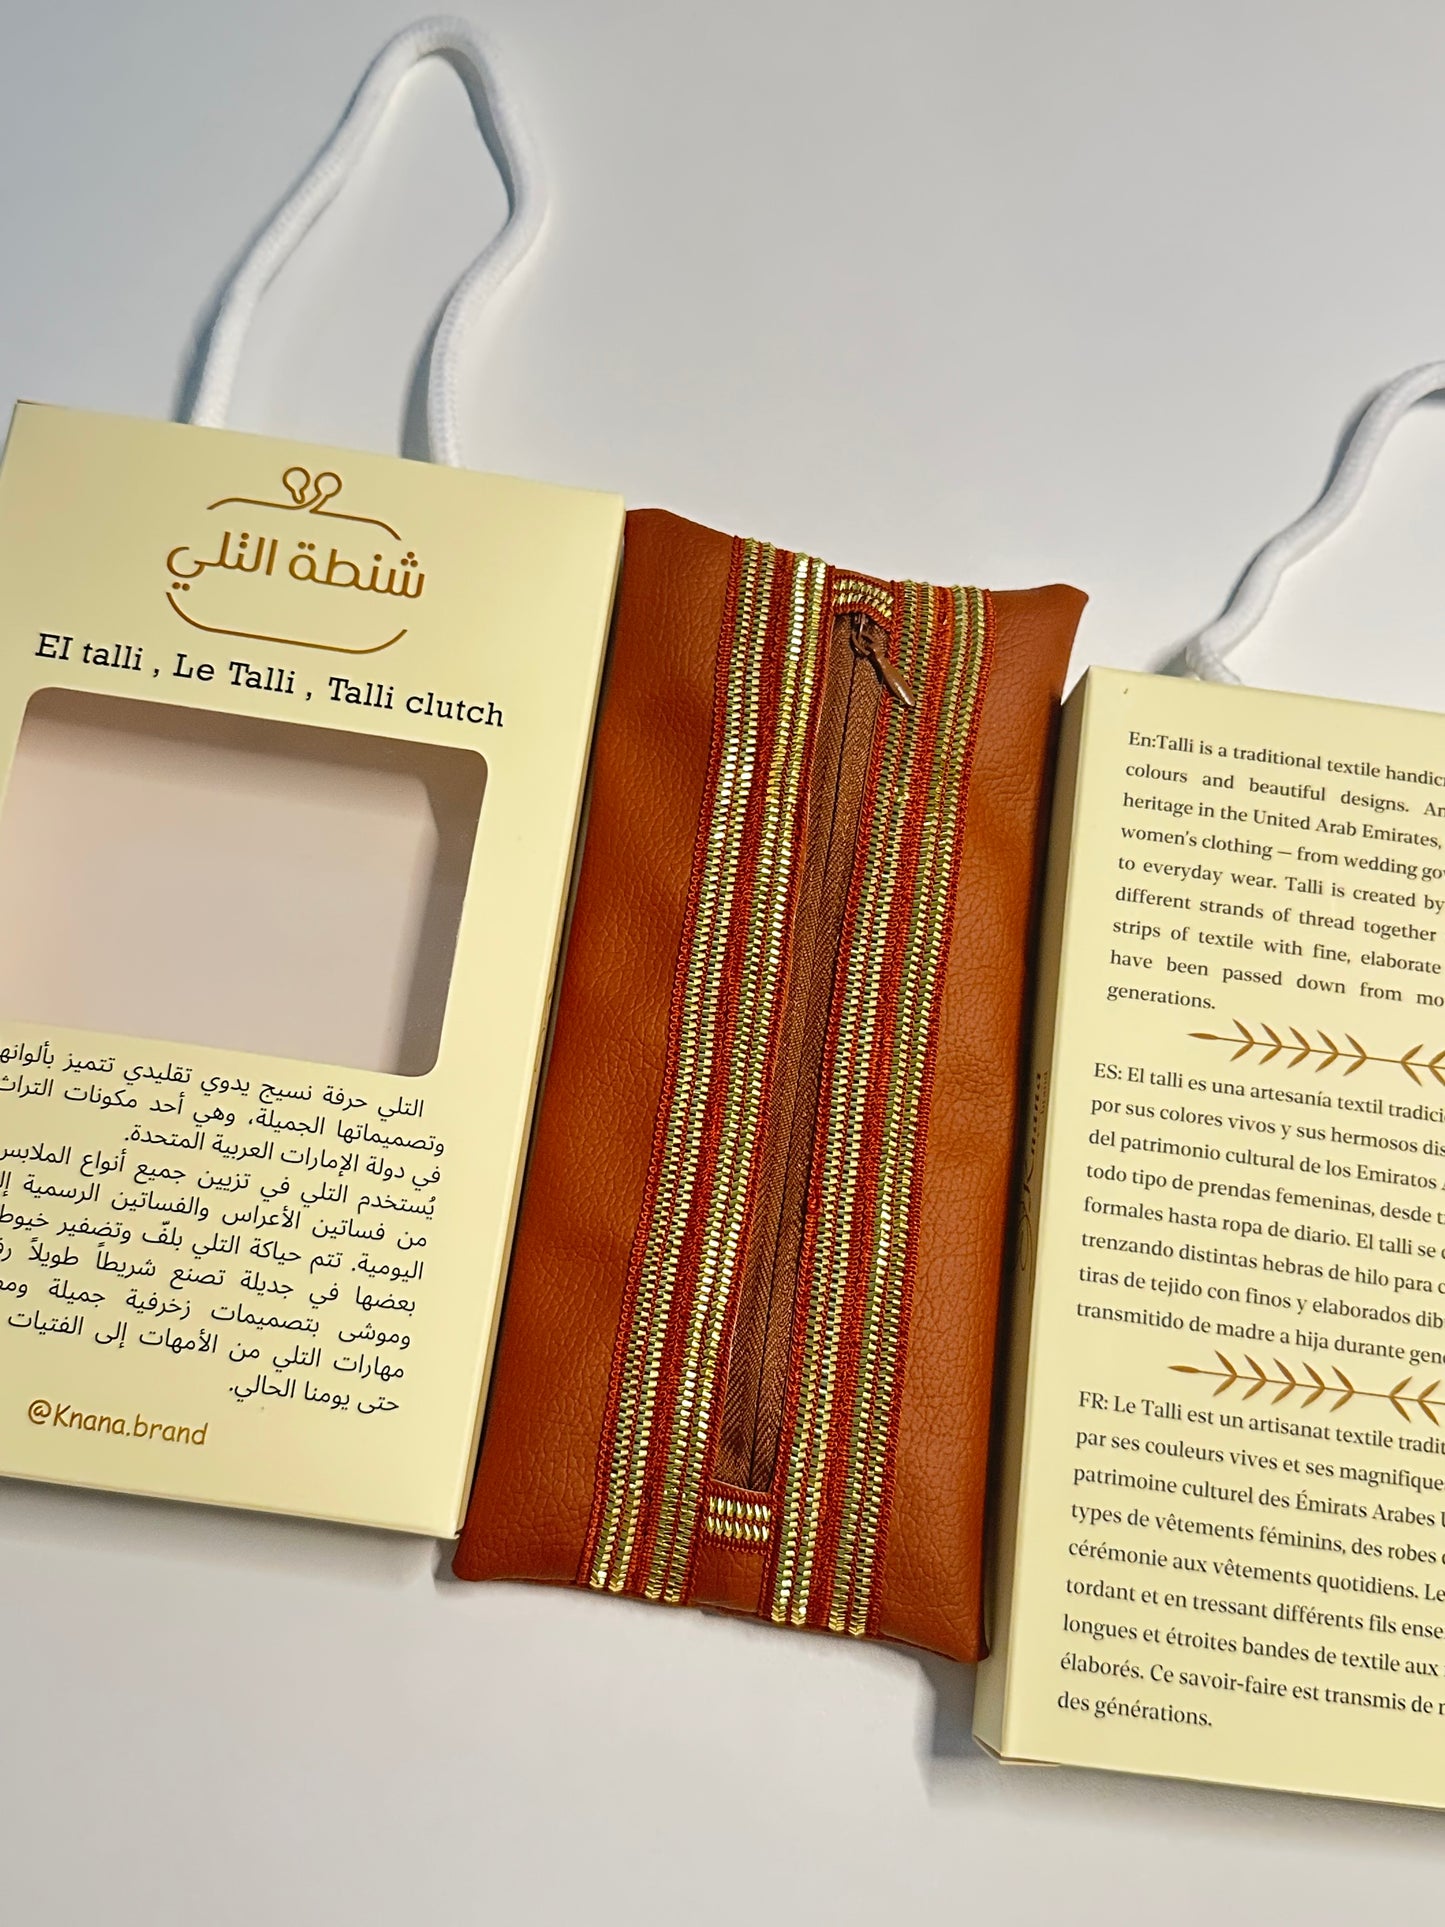 شنطة التلي
El talli , Le Talli , Talli clutch
التلي حرفة نسيج يدوي تقليدي تتميز
وتصميماتها الجميلة، وهي أحد مكونات
في دولة الإمارات العربية المتحدة.
يُستخدم التلي في تزيين جميع أنواع الملابس
من فساتين الأعراس والفساتين الرسمية
اليومية. تتم حياكة التلي بلفّ وتضفير
بعضها في جديلة تصنع شريطاً طويلاً
وموشى بتصميمات زخرفية جميلة
مهارات التلي من الأمهات إلى الفتيات
حتى يومنا الحالي.
@Knana.brand
En:Talli is a traditional textile
colours and beautiful designs.
heritage in the United Arab Emirates,
women's clothing — from wedding
to everyday wear. Talli is created by
different strands of thread together
strips of textile with fine, elaborate
have been passed down from
generations.
ES: El talli es una artesanía textil
por sus colores vivos y sus hermosos
del patrimonio cultural de los Emiratos
todo tipo de prendas femeninas, desde
formales hasta ropa de diario. El talli se
trenzando distintas hebras de hilo para
tiras de tejido con finos y elaborados
transmitido de madre a hija durante
FR: Le Talli est un artisanat textile
par ses couleurs vives et ses
patrimoine culturel des Émirats Arabes
types de vêtements féminins, des robes
cérémonie aux vêtements quotidiens. Le
tordant et en tressant différents fils
longues et étroites bandes de textile aux
élaborés. Ce savoir-faire est transmis de
des générations.